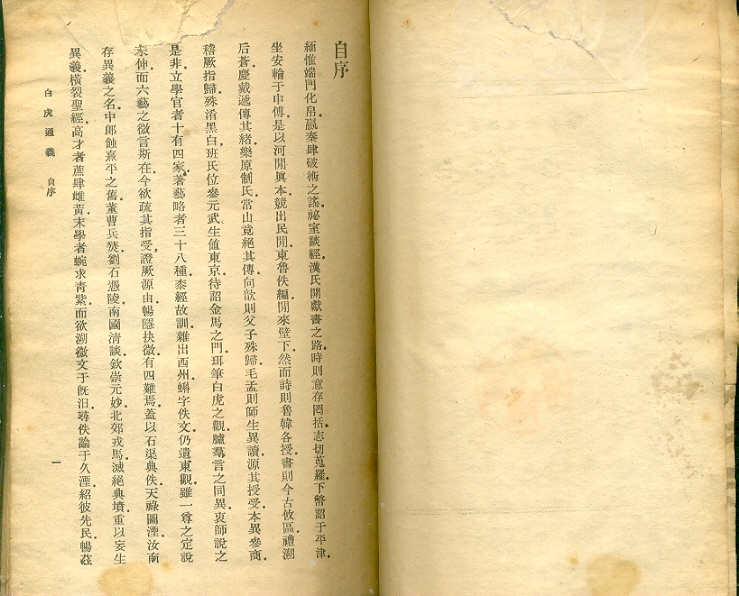 自序
緬惟端門化帛嬴秦肆破術之謠祕室談經漢氏開獻書之路時則意存罔括志切蒐羅下幣詔于平津
坐安輪于申傅是以河閒眞本競出民閒東魯佚編閒來壁下然而詩則魯韓各授書則今古攸區禮溯
后蒼慶戴遞傳其緒樂原制氏常山竟絕其傳向歆則父子殊歸毛孟則師生異讀源其授受本異參商
稽厥指歸殊淆黑白班氏位參元武生値東京待詔金馬之門珥筆白虎之觀臚羣言之同異衷師說之
是非立學官者十有四家著藝略者三十八種泰經故訓雜出西州蝌字佚文仍遺東觀雖一尊之定說
未伸而六藝之微言斯在今欲疏其指受證厥源由暢隱抉微有四難焉蓋以石渠典佚天祿圖湮汝南
存異義之名中郎蝕熹平之舊董曹兵燹劉石憑陵南國淸談欽崇元妙北郊戎馬滅絕典墳重以妄生
異義橫裂聖經高才者蔗肆雌黃末學者蜿求靑紫而欲溯微文于旣汩尋佚論于久湮紹彼先民暢茲
白虎通義 自序
一